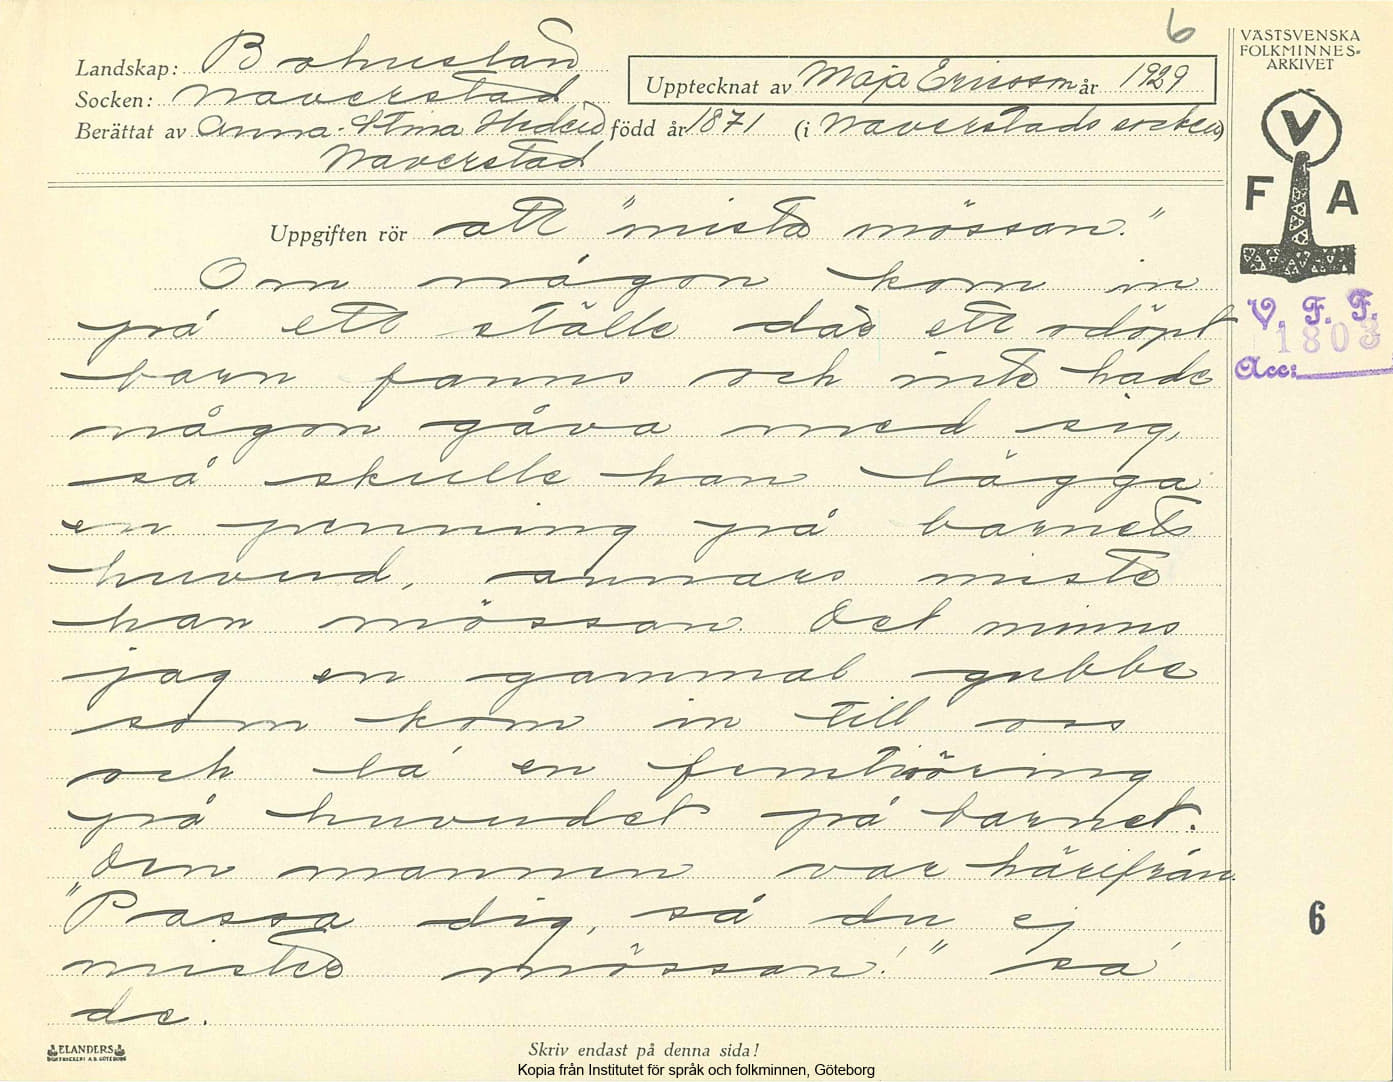 6
VÄSTSVENSKA
FOLKMINNES-
ARKIVET
Landskap: Bohuslän
Socken: Naverstad
Upptecknat av Maja Ericson år 1929
Berättat av Anna-Stina född år 1871 (i Naverstads socken)
Naverstad
V
F A
Uppgiften rör att "mista mössan."
Om någon kom in
på ett ställe där ett odöpt
barn fanns och inte hade
någon gåva med sig,
så skulle han lägga
en penning på barnets
huvud, annars miste
han mössan. Det minns
jag en gammal gubbe
som kom in till oss
och la' en femtioöring
på huvudet på barnet.
Den mannen var härifrån.
"Passa dig, så du ej
mister mössan!" sa'
de.
V. F. F.
1803
Acc:
6
ELANDERS
BOKTRYCKERI A.B. GÖTEBORG
Skriv endast på denna sida!
Kopia från Institutet för språk och folkminnen, Göteborg